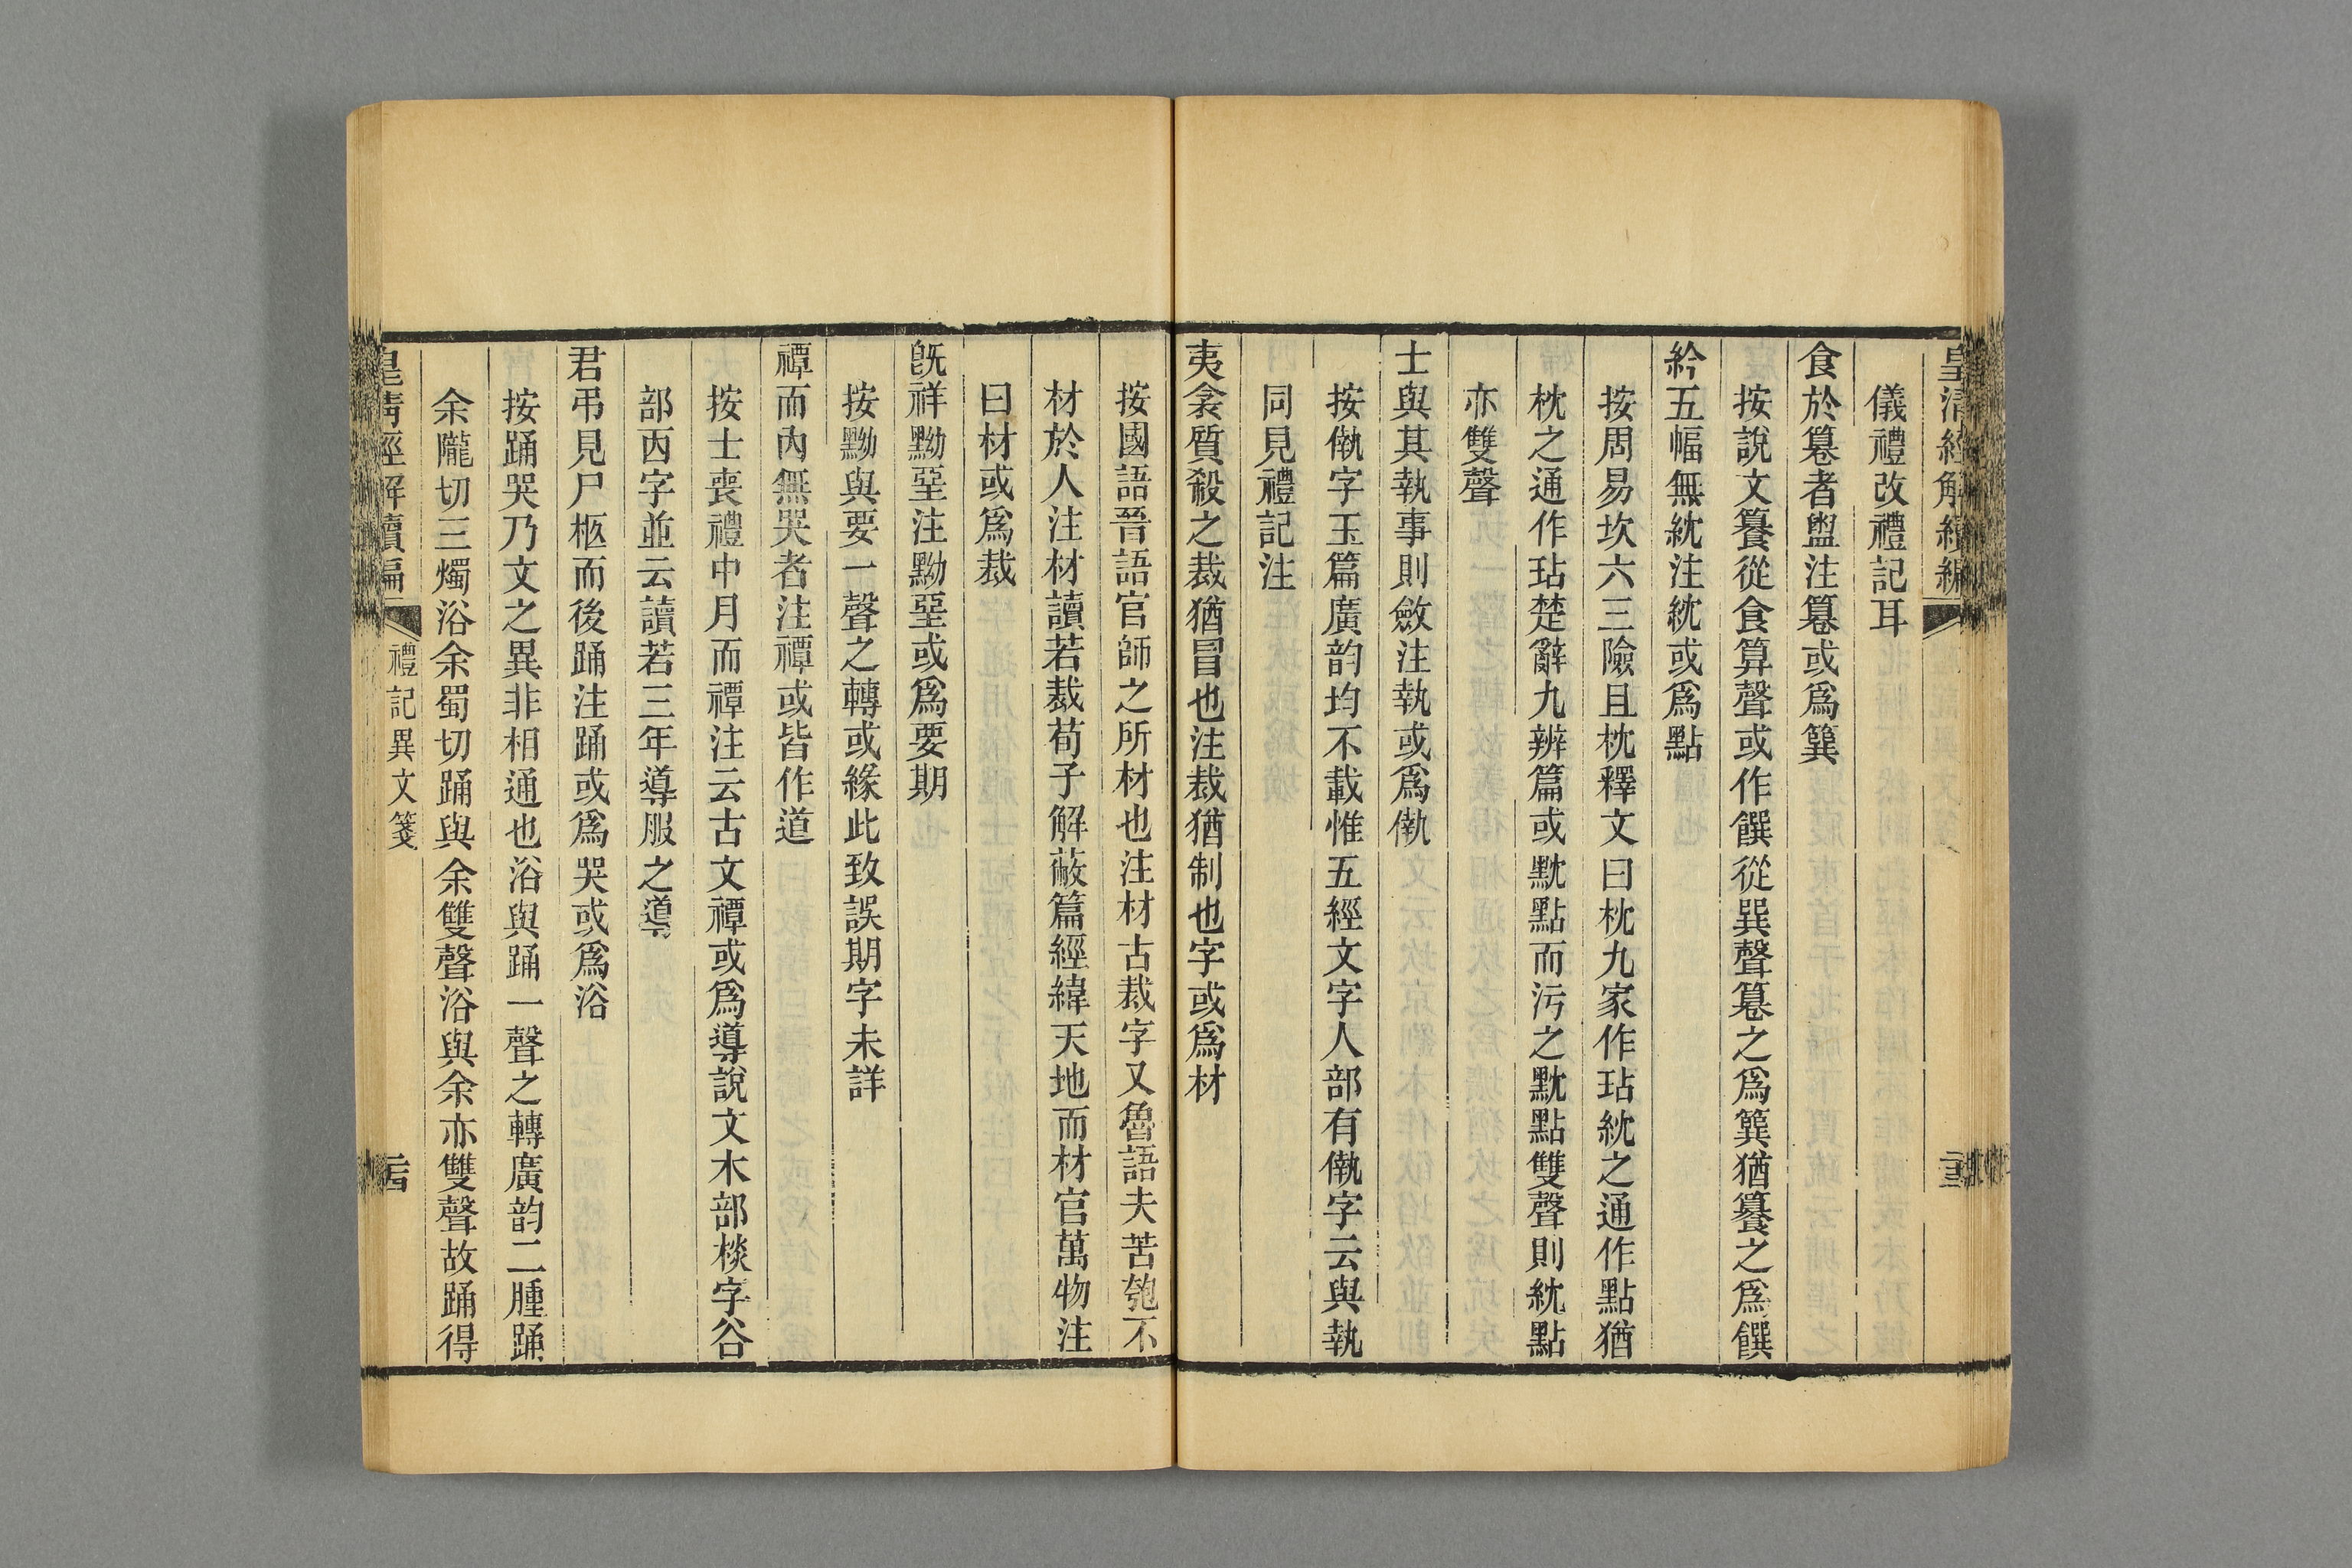 皇清經解續編
儀禮改禮記耳
食於篹者盥注篹或爲簨
按說文籑從食算聲或作饌從巽聲篹之爲簨猶籑之爲饌
紟五幅無紞注紞或爲點
按周易坎六三險且枕釋文曰枕九家作玷紞之通作點猶
枕之通作玷楚辭九辨篇或黕點而污之黕點雙聲則紞點
亦雙聲
士與其執事則斂注執或爲㔼
按㔼字玉篇廣韵均不載惟五經文字人部有㔼字云與執
同見禮記注
夷衾質殺之裁猶冒也注裁猶制也字或爲材
按國語晉語官師之所材也注材古裁字又魯語夫苦匏不
材於人注材讀若裁荀子解蔽篇經緯天地而材官萬物注
曰材或爲裁
旣祥黝堊注黝堊或爲要期
按黝與要一聲之轉或緣此致誤期字未詳
禫而內無哭者注禫或皆作道
按士喪禮中月而禫注云古文禫或爲導說文木部棪字谷
部㐁字並云讀若三年導服之導
君弔見尸柩而後踊注踊或爲哭或爲浴
按踊哭乃文之異非相通也浴與踊一聲之轉廣韵二腫踊
余隴切三燭浴余蜀切踊與余雙聲浴與余亦雙聲故踊得
皇清經解續編
禮記異文箋